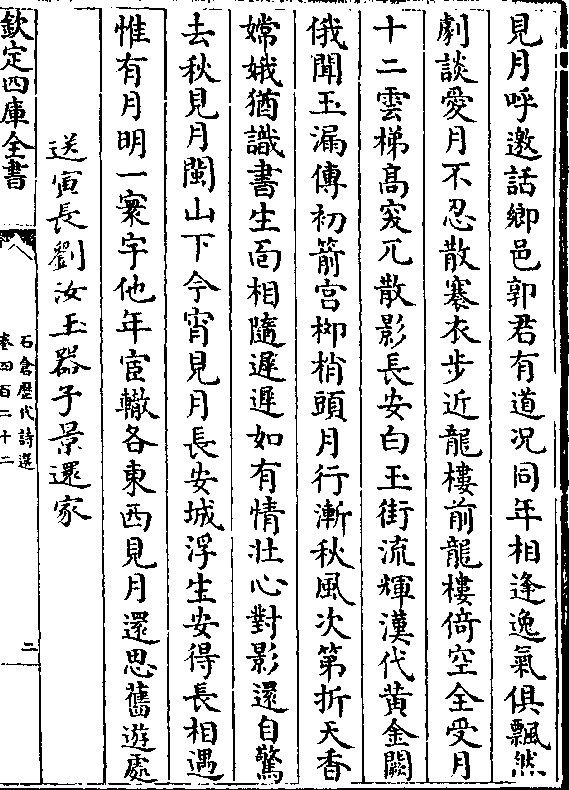 見月呼邀話鄉邑郭君有道况同年相逢逸氣俱飄然
劇談愛月不忍散褰衣步近龍樓前龍樓倚空全受月
十二雲梯高突兀散影長安白玉街流輝漢代黄金闕
俄聞玉漏傳初箭宫栁梢頭月行漸秋風次第折天香
嫦娥猶識書生面相隨遲遲如有情壯心對影還自驚
去秋見月閩山下今宵見月長安城浮生安得長相遇
惟有月明一寰宇他年宦轍各東西見月還思舊遊處
送寅長劉汝玉器子景還家
欽定四庫全書
石倉歷代詩選
卷四百二十二
二